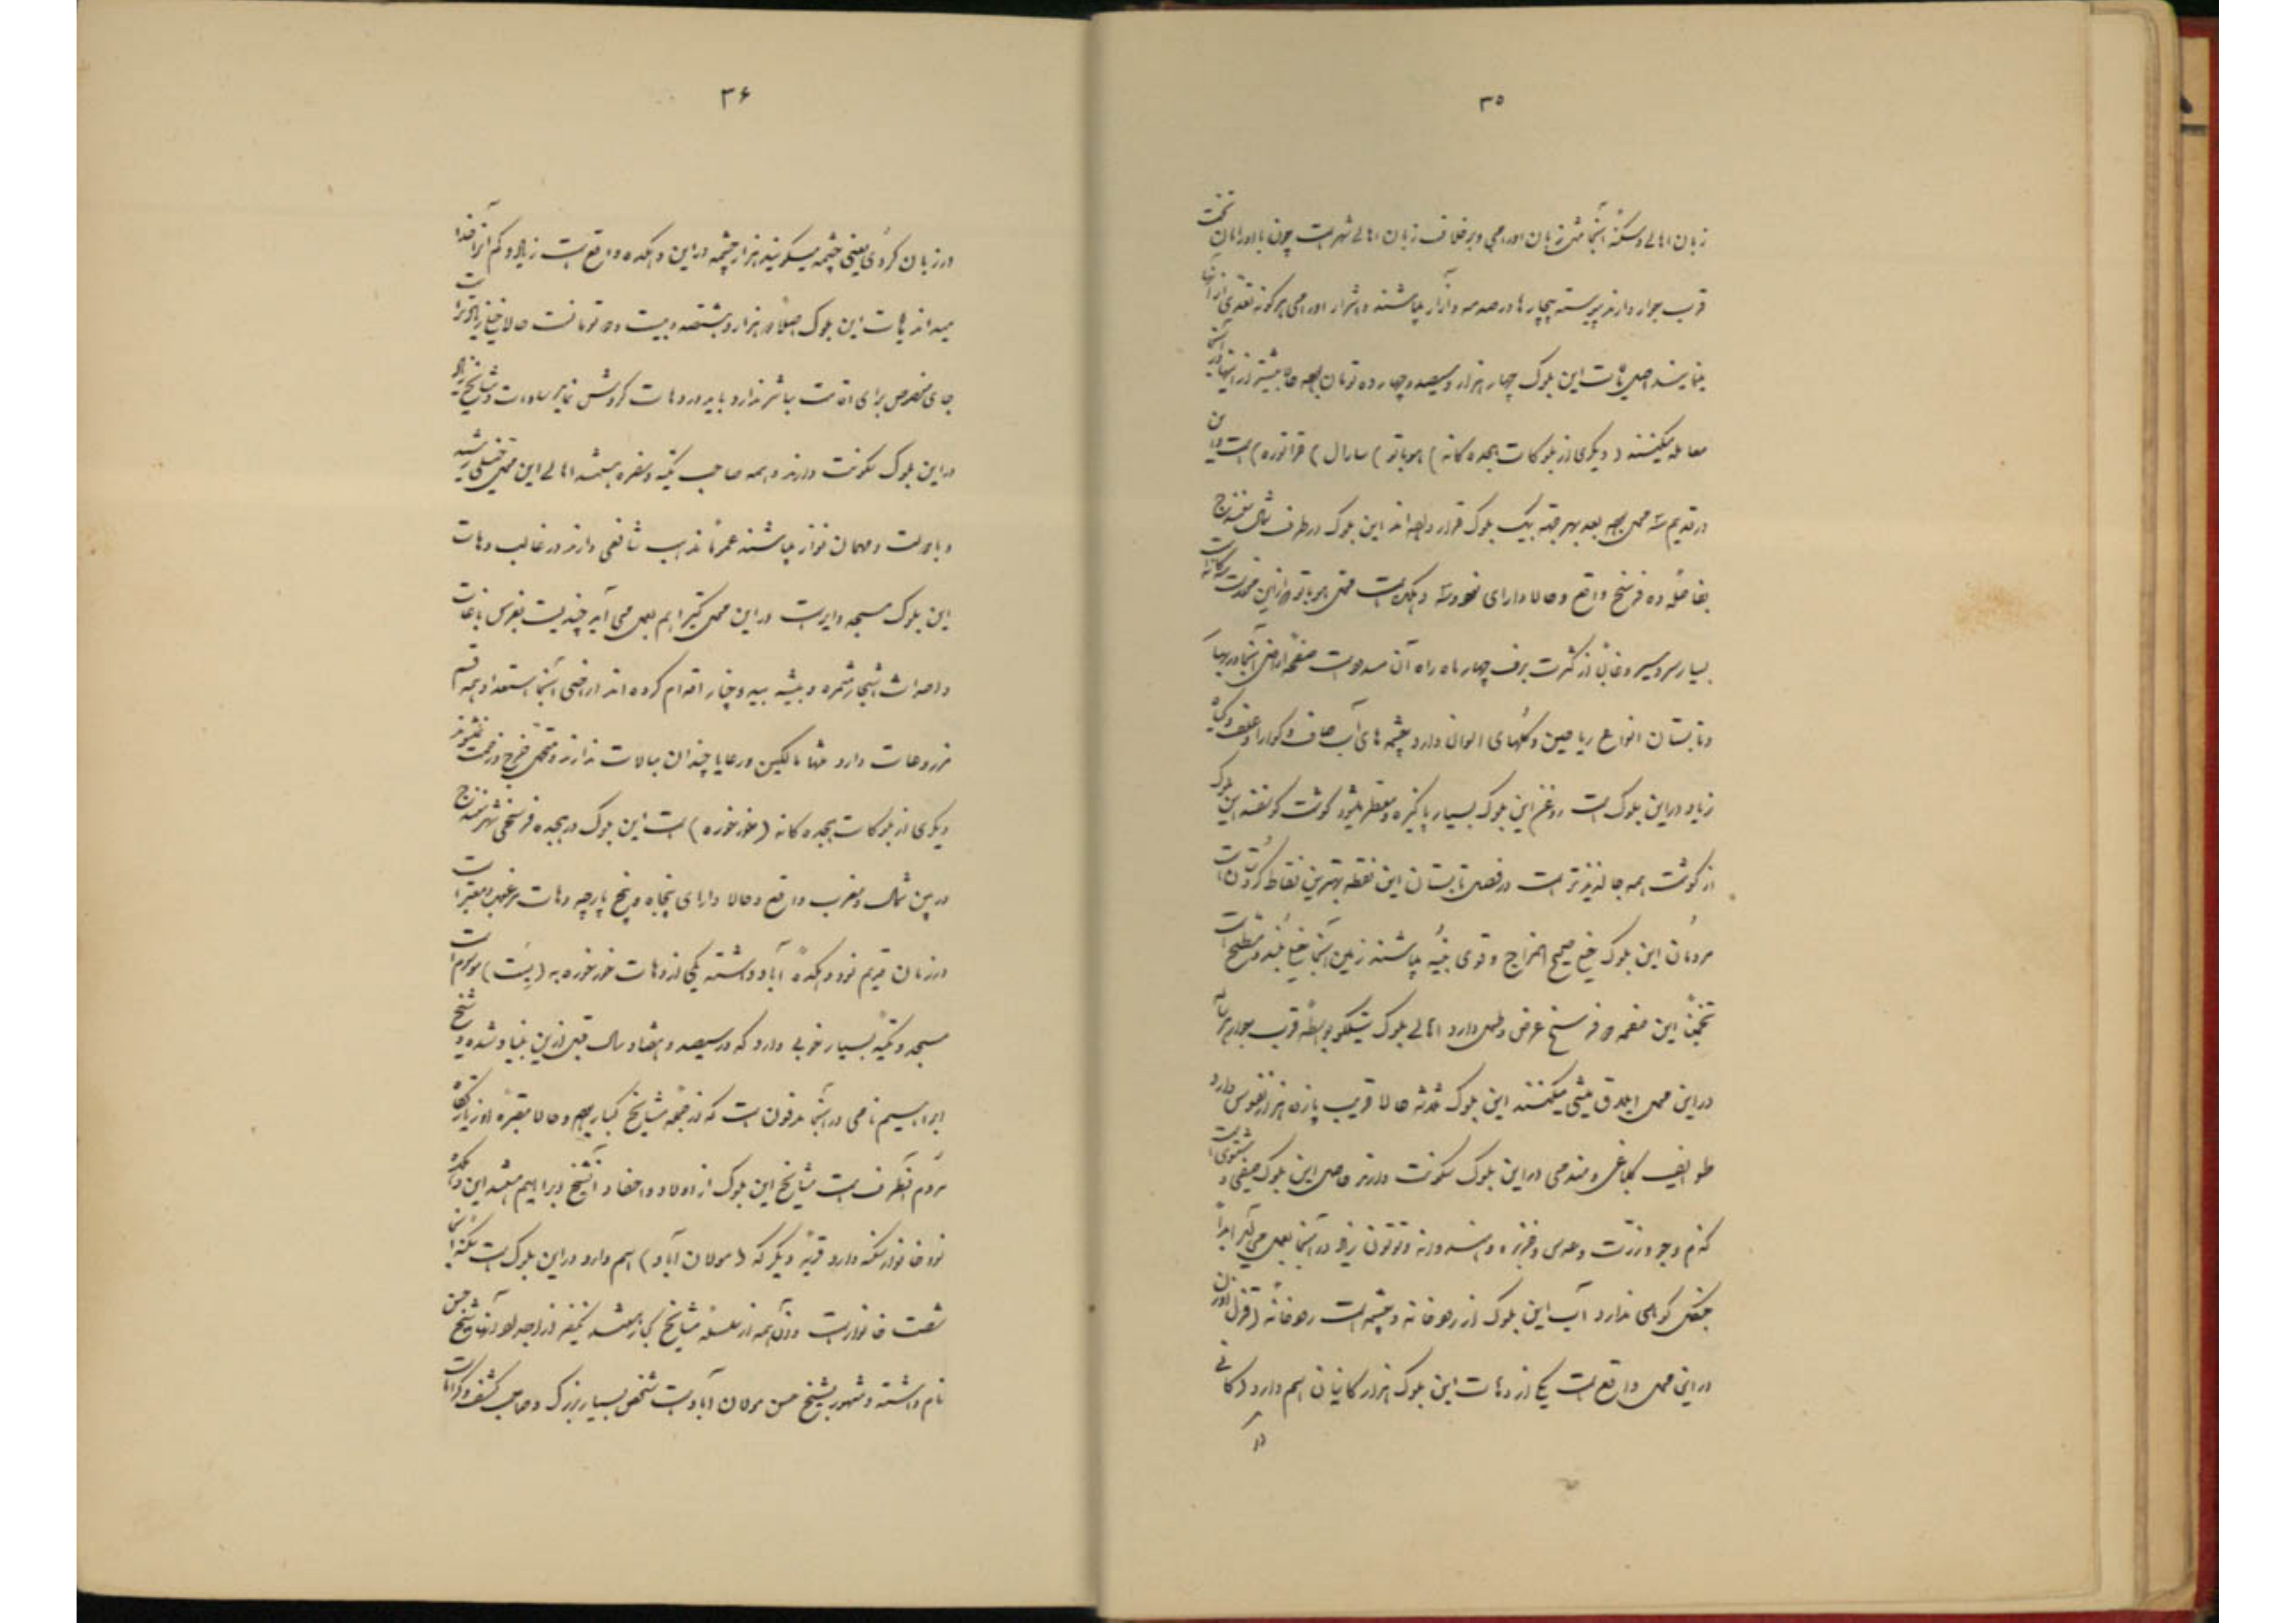 ۳۵
زبان اهالی و سکنه آنجا مثل زبان اورامی و برخلاف زبان اهالی شهر است چون با اورامان تخت
قرب جوار دارند پیوسته بیچارها در صدمه و آزار میباشند و اشرار اورامی هرگونه تعدی از آنها
مینمایند اصل مالیات این بلوک چهار هزار و سیصد و چهارده تومان بوده حالا بیشتر از اینها در آنجا
معامله میکنند (دیگری از بلوکات هجده‌گانه) هوباتو) سارال) قراتوره) است این
در قدیم سه محل بوده بعد بهر جهة بیک بلوک قرار داده‌اند این بلوک در طرف شمال سنندج
بفاصله ده فرسخ واقع و حالا دارای نود و سه دهکده است محل هوباتو از این محلات سه‌گانه
بسیار سردسیر و غالباً از کثرت برف چهار ماه راه آن مسدود است صفحه اراضی آنجا در بهار
و تابستان انواع ریاحین و گلهای الوان دارد چشمه‌های آب صاف و گوارا و علف و گیاه
زیاد در این بلوک است روغن این بلوک بسیار پاکیزه و معطر میشود گوشت گوسفند این بلوک
از گوشت همه جا لذیذتر است در فصل تابستان این نقطه بهترین نقاط کردستان است
مردمان این بلوک خیلی صحیح المزاج و قوی بنیه میباشند زمین آنجا خیلی بلند و مسطح است
تخمیناً این صفحه فرسخ عرض و طول دارد اهالی بلوک بواسطه قرب جوار هر ساله
در این محل ییلاق میشی میکنند این بلوک ثلاثه حالا قریب پانزده هزار نفوس دارد
طوایف گلباغی و مندمی در این بلوک سکونت دارند حاصل این بلوک صیفی و شتوی است
گندم و جو و زرت و عدس و خربزه و هندوانه و توتون زیاد در آنجا بعمل می‌آید ابداً
جنگل کوهی ندارد آب این بلوک از رودخانه و چشمه است رودخانه (قزل اوزن
در این محل واقع است یکی از دهات این بلوک هزار کانیان اسم دارد (کانی
در
۳۶
در زبان کردی یعنی چشمه میگویند هزار چشمه در این دهکده واقع است زیاد و کم آنرا خدا
میداند مالیات این بلوک اصلاً دو هزار و هشتصد و بیست و دو تومانست حالا خیلی زیادتر است
جای مخصوص برای اقامت مباشر ندارد باید در دهات گردش نماید سادات و مشایخ زیاد
در این بلوک سکونت دارند و همه صاحب تکیه و سفره هستند اهالی این محل خیلی رشید
و با دولت و مهمان نواز میباشند عموماً مذهب شافعی دارند در غالب دهات
این بلوک مسجد دایر است در این محل کتیرا هم بعمل می‌آید چندیست بغرس باغات
و احداث اشجار مثمره و بیشه بید و چنار اقدام کرده‌اند اراضی آنجا استعداد همه قسم
مزروعات دارد منتها مالکین و رعایا چندان مبالات ندارند و متحمل خرج و زحمت نمیشوند
دیگری از بلوکات هجده‌گانه (خورخوره) است این بلوک در هجده فرسخی شهر سنندج
در بین شمال و مغرب واقع و حالا دارای پنجاه و پنج پارچه دهات مرغوب و معتبر است
در زمان قدیم نود دهکده آباد داشته یکی از دهات خورخوره به (بِسَت) موسوم است
مسجد و تکیه بسیار خوبی دارد که در سیصد و هفتاد سال قبل از این بنیاد شده و شیخ
ابراهیم نامی در آنجا مدفون است که از جمله مشایخ کبار بوده و حالا مقبره او زیارتگاه
مردم آنطرف است مشایخ این بلوک از اولاد و احفاد آنشیخ ابراهیم هستند این دهکده
نود خانوار سکنه دارد قریه دیگر که (مولان آباد) اسم دارد در این بلوک است سکنه آنجا
شصت خانوار است و آن همه از سلسله مشایخ کبار هستند یکنفر از اجداد آنها شیخ حسن
نام داشته و مشهور بشیخ حسن مولان آباد است شخص بسیار بزرگ و صاحب کشف و کرامات